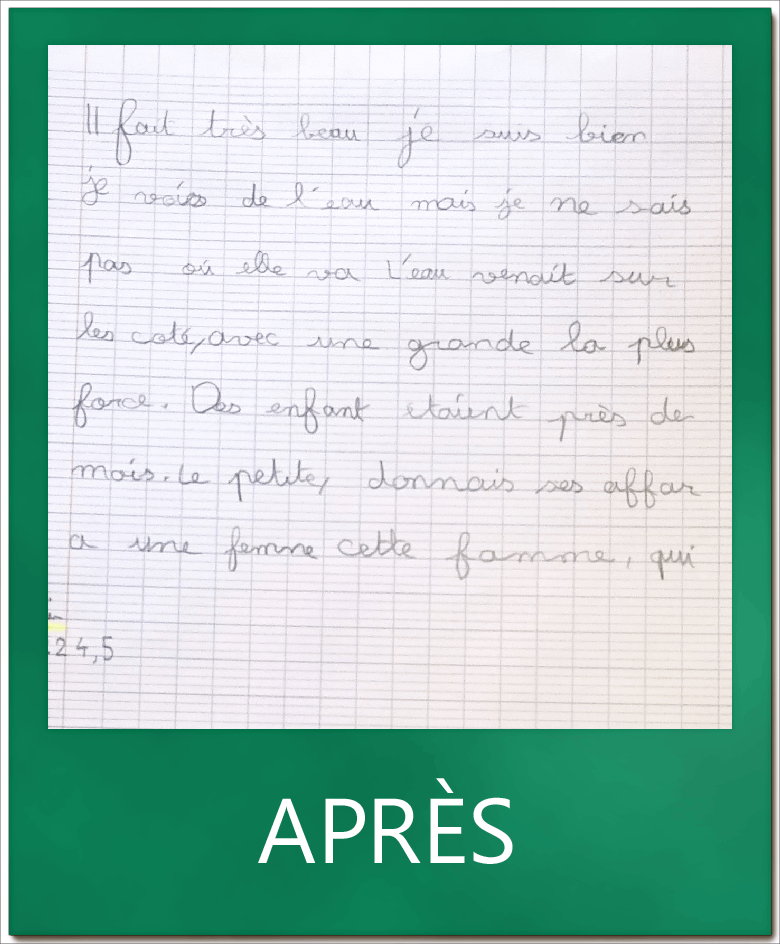 Il fait très beau je suis bien
je vois de l'eau mais je ne sais
pas où elle va L'eau venait sur
les coté, avec une grande la plus
force. Des enfant etaient près de
mois. Le petite, donnais ses affar
a une femme cette famme, qui
24,5
APRÈS